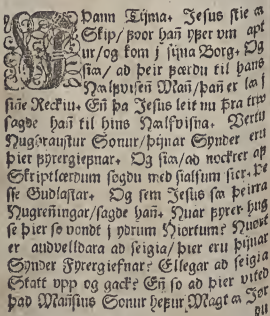 Þann Tijma. Jesus stie aa
Skip/ foor hañ yfer vm apt
ur/ og kom j sijna Borg. Og
siaa/ ad þeir færdu til hans
Halfvisen Mañ/ þañ er laa j
siñe Reckiu. Eñ þa Jesus leit nu þra trw
sagde hañ til hins Halfvisna. Vertu
Hughraustur Sonur/ þijnar Synder eru
þier fyrergiefnar. Og siaa/ ad nockrer af
Skriptlærdum sogdu med sialfum sier. Þe
sse Gudlastar. Og sem Jesus saa þeirra
Hugreñingar/ sagde hañ. Huar fyrer hug
se þier so vondt i ydrum Hiortum? Huort
er audvelldara ad seigia/ þier eru þijnar
Synder Fyrergiefnar? Ellegar ad seigia
Statt vpp og gack? Eñ so ad þier vited
þad Mañsins Sonur hefur Magt aa Jør